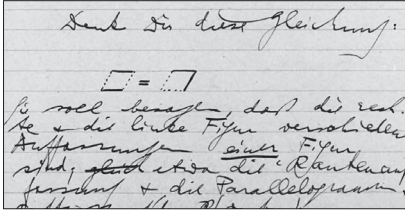 Denk Dir diese Gleichung:
=
Sie soll besagen, daß die rech-
te & die linke Figur verschiedene
Auffassungen einer Figur
sind; gleich etwa die Rautenauf-
fassung & die Parallelogramm-